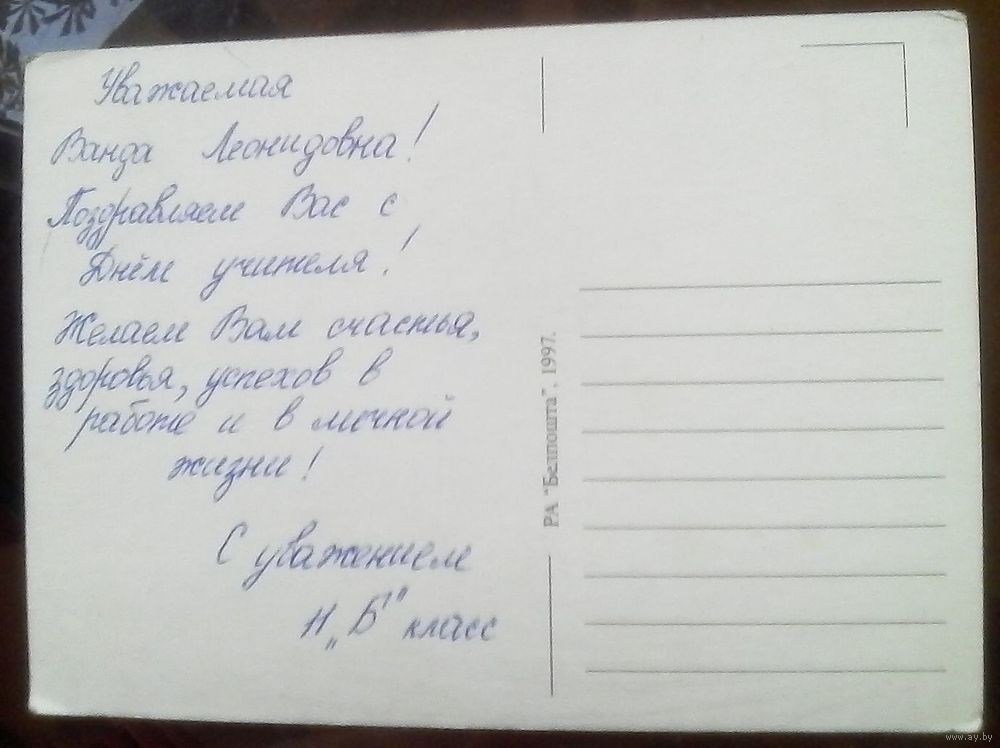 Уважаемая
Ванда Леонидовна!
Поздравляем Вас с
Днём учителя!
Желаем Вам счастья,
здоровья, успехов в
работе и в личной
жизни!
С уважением
11 „Б" класс
РА "Белпошта", 1997.
www.ay.by